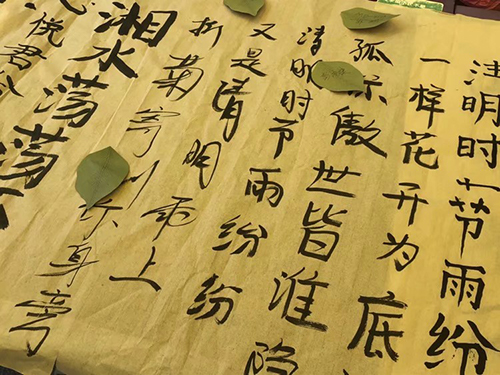 清明时节雨纷
一样花开为底
孤傲世皆谁隐
清明时节雨纷纷
又是清明雨上
折菊寄到你身旁
湘水荡荡
悦君